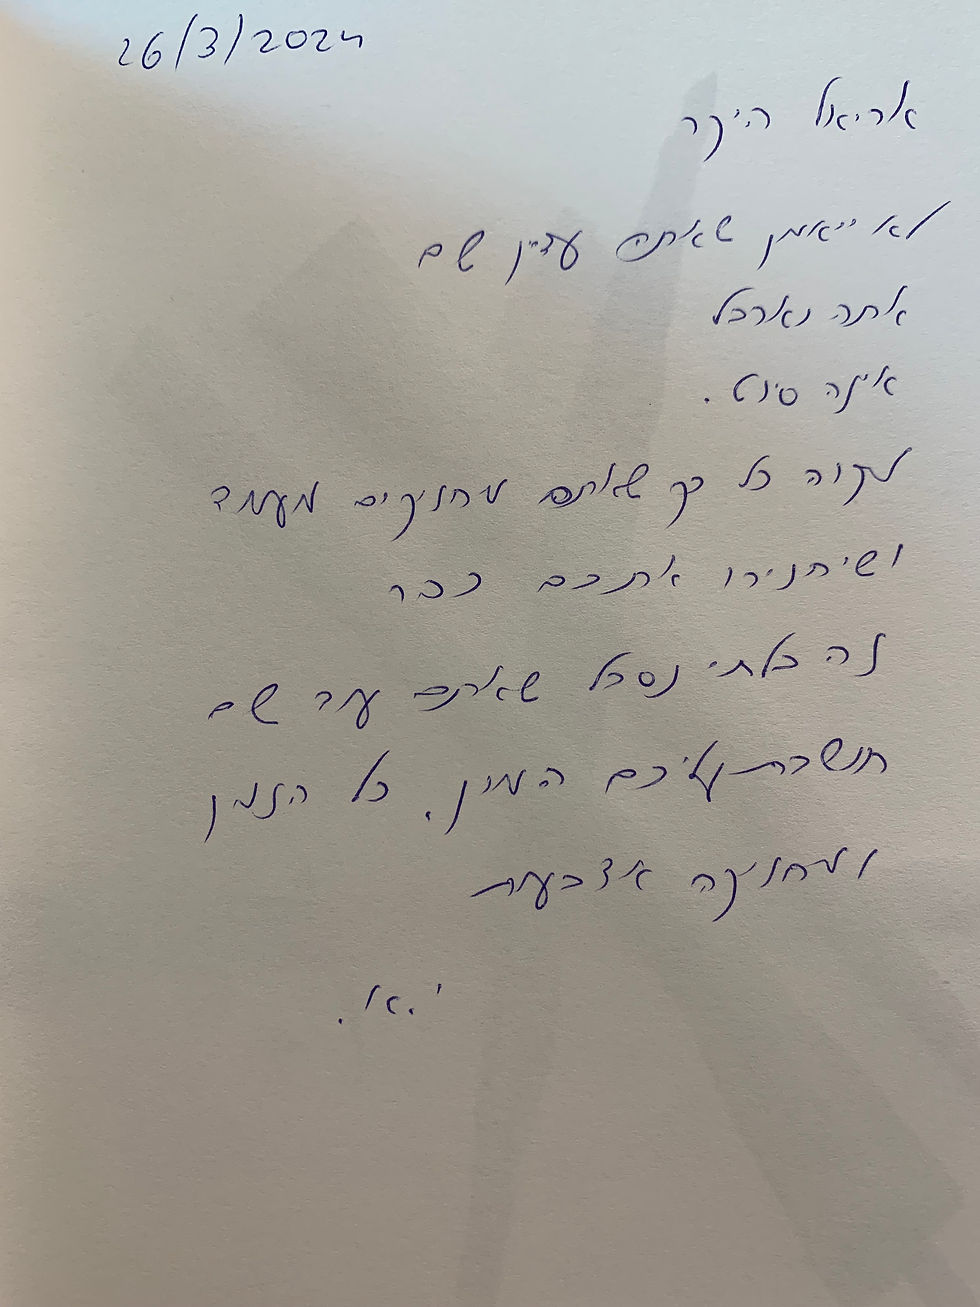 26/3/2024
אריאל היקר
לא ייאמן שאתם עדיין שם
אתה נארכל
איזה סיוט.
מקווה כל כך שאתם מחזיקים מעמד
ושיחזירו אתכם כבר
זה בלתי נסבל שאתם עוד שם
חושבת עליכם המון. כל הזמן
ומחזיקה אצבעות
י.א.